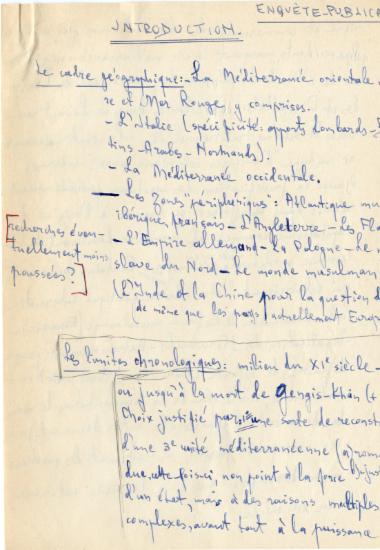 ENQUÊTE-PUBLICA
INTRODUCTION.
Le cadre géographique:- La Méditerranée orientale
re et Mer Rouge y comprises.
- L'Italie (spécificité: apports Lombards-
tins-Arabes-Normands).
- La Méditerranée occidentale.
- Les zones "périphériques": Atlantique mu
ibérique, français - L'Angleterre - Les Fla
- L'Empire allemand - La Pologne - Le
slave du Nord - Le monde musulman
(L'Inde et la Chine pour la question d
de même que les pays actuellement Europ
[recherches éven-
tuellement moins
poussées?]
Les limites chronologiques: milieu du XIe siècle -
ou jusqu'à la mort de Gengis-Khân (+
Choix justifié par une sorte de reconst
d'une 3e unité méditerranéenne (
due, cette fois-ci, non point à la force
d'un état, mais à des raisons multiples
complexes, avant tout à la puissance